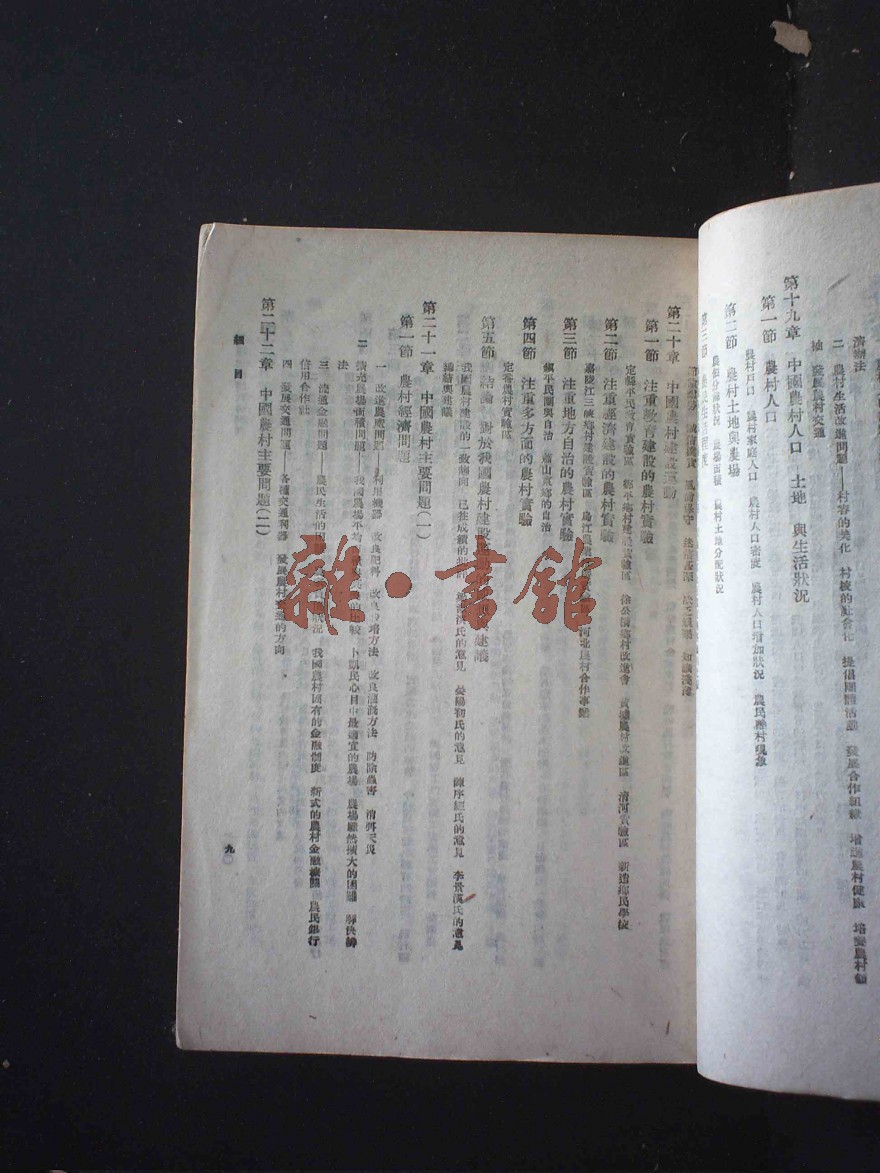 濟辦法
二 農村生活改進問題——村容的美化 村校的社會化 提倡團體活動 發展合作組織 增進農村健康 培養農村領
袖 發展農村交通
第十九章 中國農村人口 土地 與生活狀況
第一節 農村人口
農村戶口 農村家庭人口 農村人口密度 農村人口增加狀況 農民離村現象
第二節 農村土地與農場
農佃分佈狀況 農場面積 農村土地分配狀況
第三節 農民生活程度
第二十章 中國農村建設運動
第一節 注重教育建設的農村實驗
定縣平民教育實驗區 鄒平鄉村建設實驗區 徐公橋鄉村改進會 黃墟農村改進區 清河實驗區 新造鄉民學校
第二節 注重經濟建設的農村實驗
嘉陵江三峽鄉村建設實驗區 烏江農 河北農村合作事業
第三節 注重地方自治的農村實驗
鎮平民團與自治 蕭山東鄉的自治
第四節 注重多方面的農村實驗
定番農村實驗區
第五節 結論 對於我國農村建設 建議
我國農村建設的一致趨向 已往成績的批評 氏的意見 晏陽初氏的意見 陳序經氏的意見 李景漢氏的意見
總結與建議
第二十一章 中國農村主要問題(一)
第一節 農村經濟問題
一 改進農產問題——利用機器 改良肥料 改良 方法 改良灌溉方法 防除蟲害 消弭天災
二 擴充農場面積問題——我國農場平均 的比較 卜凱氏心目中最適宜的農場 農場驟然擴大的困難 解決辦
法
三 流通金融問題——農民生活的 狀況 我國農村固有的金融制度 新式的農村金融機關 農民銀行
信用合作社
四 發展交通問題——各種交通利器 發展農村交通的方向
第二十二章 中國農村主要問題(二)
細目
一九
雜·書館